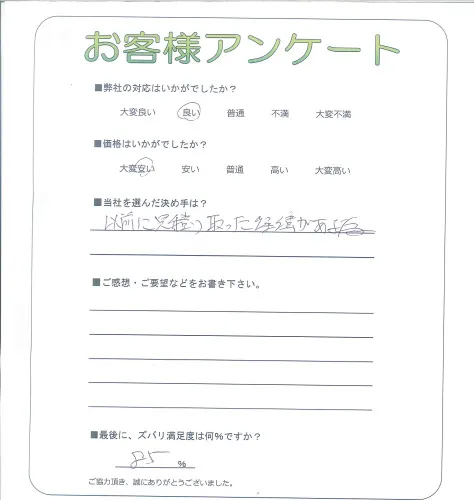 お客様アンケート
■弊社の対応はいかがでしたか？
大変良い 良い 普通 不満 大変不満
■価格はいかがでしたか？
大変安い 安い 普通 高い 大変高い
■当社を選んだ決め手は？
以前に見積り取った経緯があった
■ご感想・ご要望などをお書き下さい。
■最後に、ズバリ満足度は何%ですか？
85 %
ご協力頂き、誠にありがとうございました。